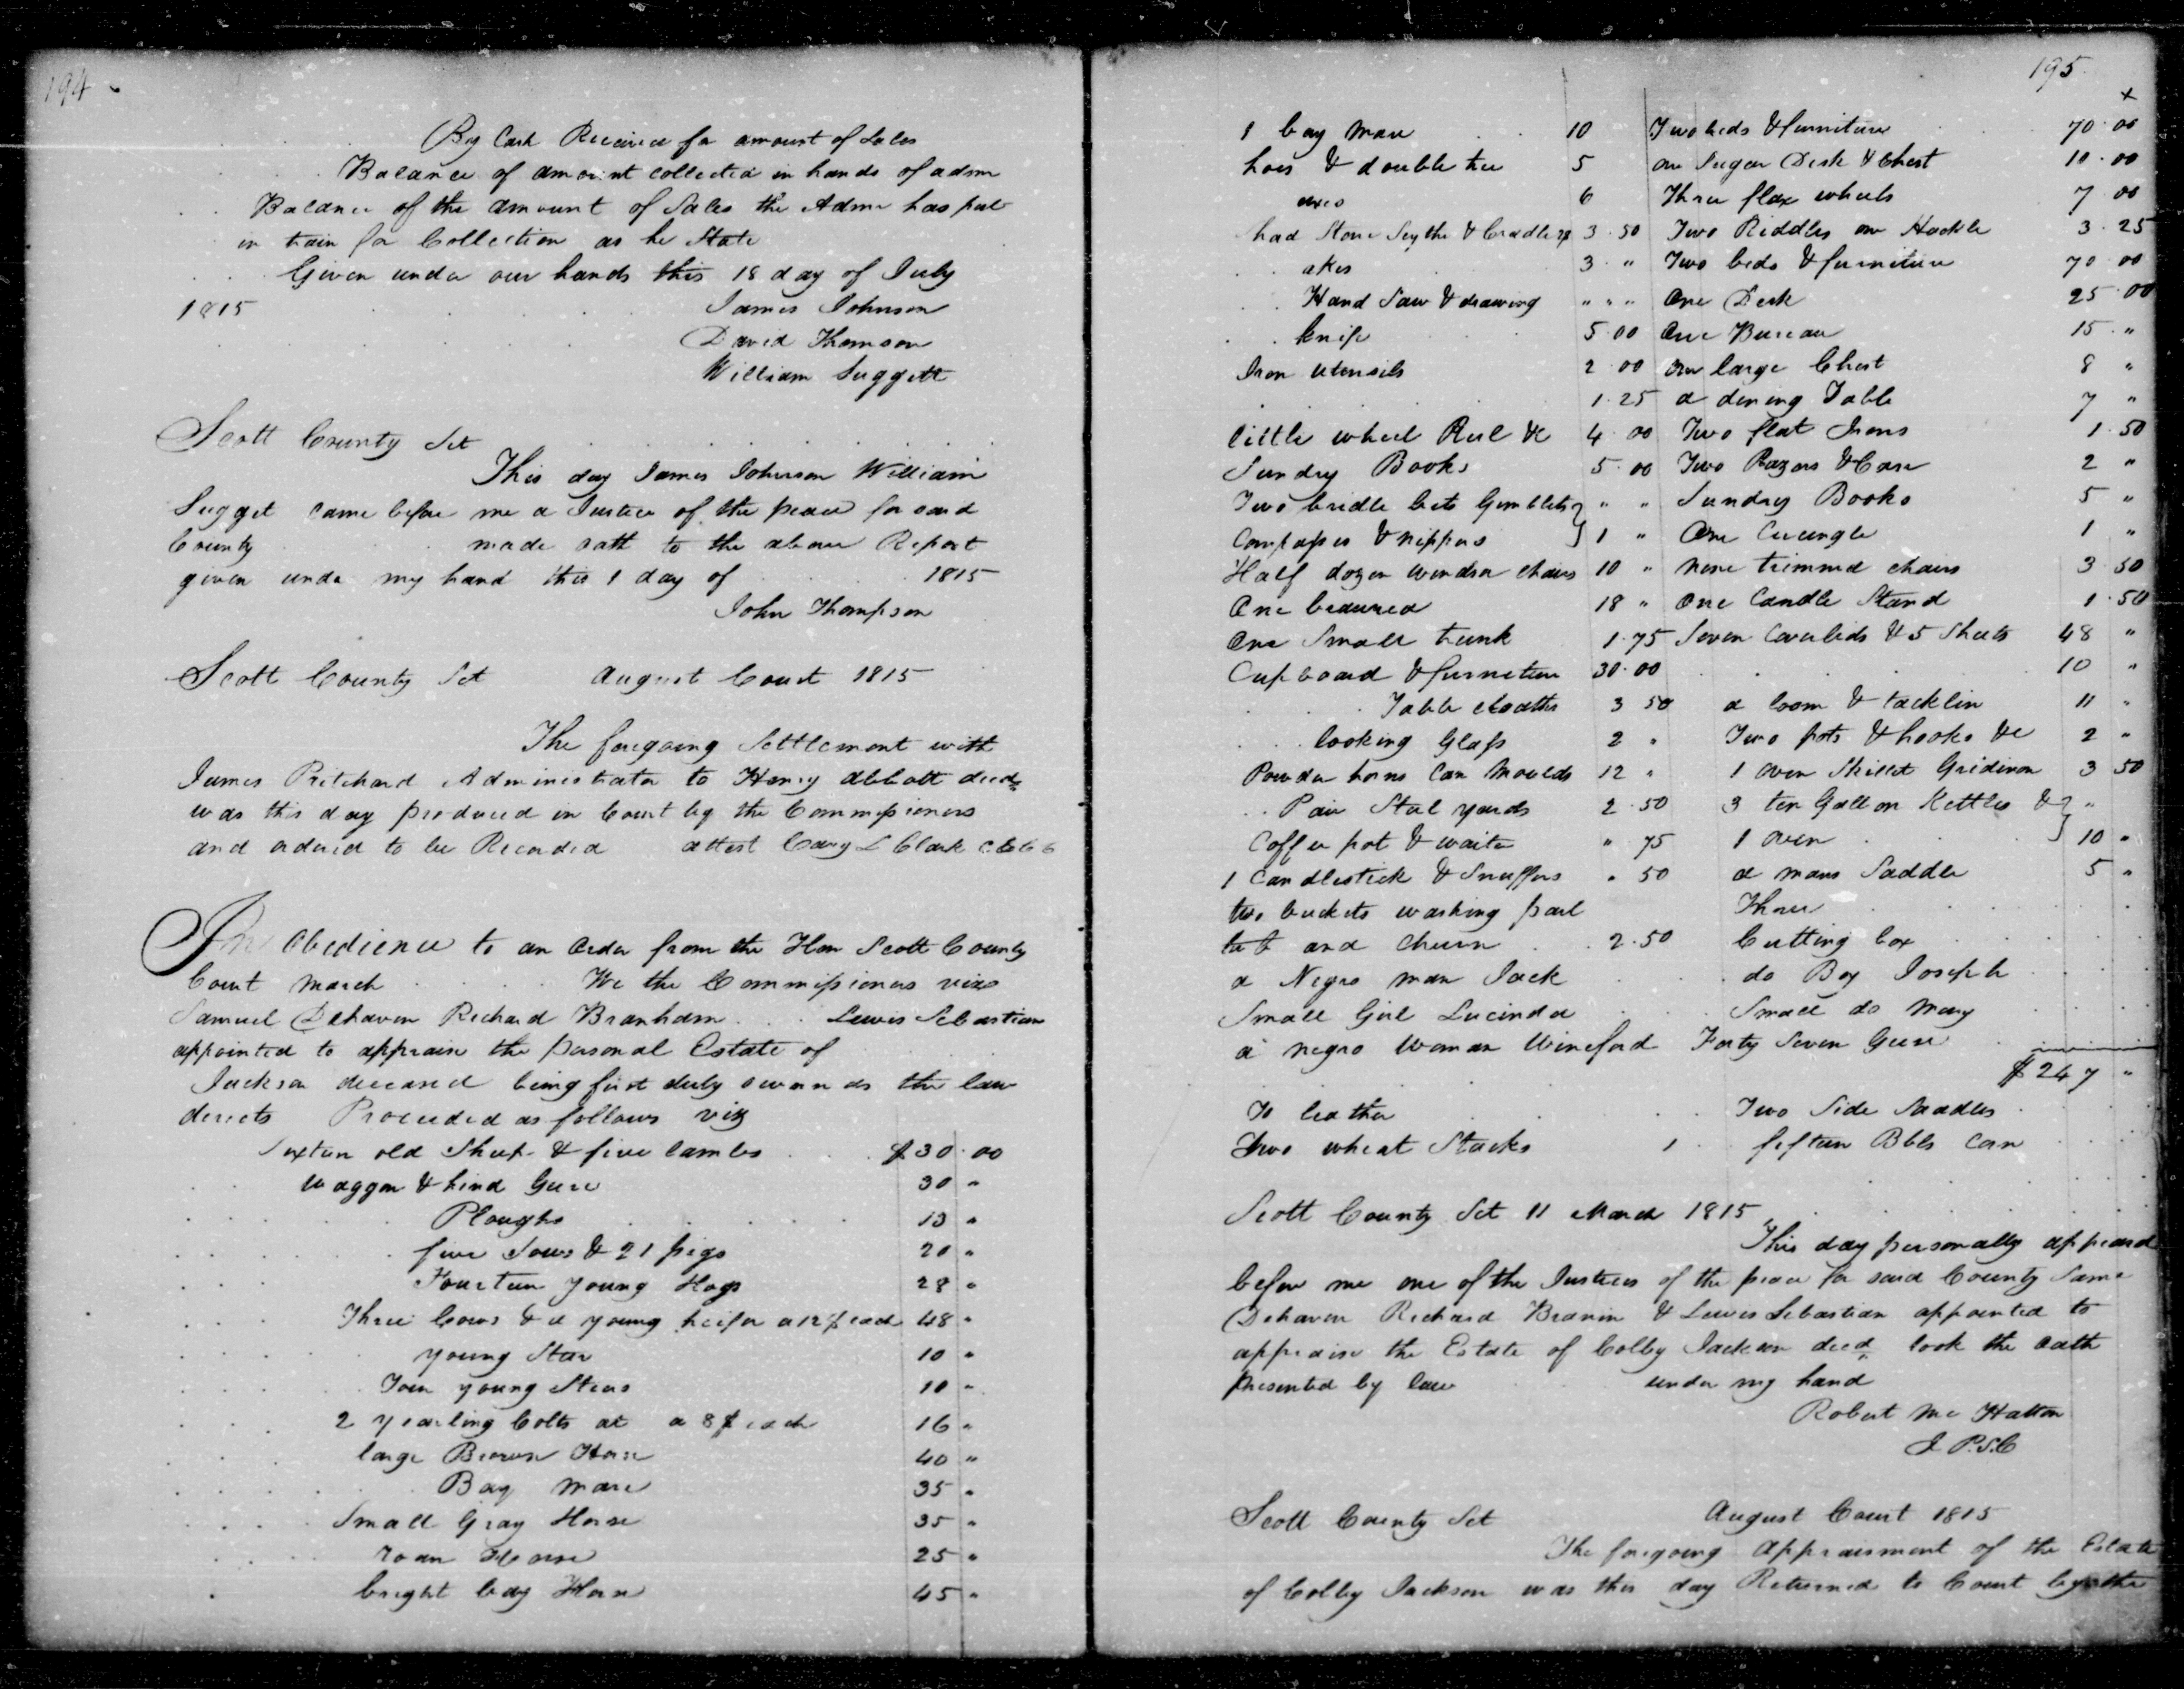 194
By Cash Received for amount of Sales
Balance of amount collected in hands of admr
Balance of the amount of Sales the Admr has put
in train for Collection as he State
Given under our hands this 18 day of July
1815 James Johnson
David Thomson
William Suggett
Scott County Sct
This day James Johnson William
Sugget came before me a Justice of the peace for said
County made oath to the above Report
given unde my hand this 1 day of 1815
John Thompson
Scott County Sct August Court 1815
The foregoing Settlement with
James Pritchard Administrator to Henry Abbott decd
was this day produced in Court by the Commissioners
and ordered to be Recorded attest Cary L Clark
In Obedience to an Order from the Hon Scott County
Court March We the Commissioners viz
Samuel Dehaven Richard Branham Lewis Sebastian
appointed to appraise the personal Estate of
Jackson deceased being first duly sworn as the law
directs Proceeded as follows viz
Sixteen old Sheep & five lambs $30.00
Waggon & hind Gere 30 "
Ploughs 13 "
five Sows & 21 pigs 20 "
Fourteen young Hogs 28 "
Three Cows & a young heifer a 12$ each 48 "
young Stear 10 "
Four young Stears 10 "
2 yearling Colts at a 8$ each 16 "
large Brown Horse 40 "
Bay mare 35 "
Small Gray Horse 35 "
roan Horse 25 "
bright bay Horse 45 "
195
1 bay Mare 10 Two beds & furniture 70.00
hoes & double tree 5 one Sugar Desk & Chest 10.00
axes 6 Three flax wheels 7 00
had Stone Sythe & Cradle 3.50 Two Riddles one Hackle 3.25
akes 3 " Two beds & furniture 70 00
Hand Saw & drawing " " " One Desk 25.00
knife 5.00 One Bureau 15 "
Iron utensils 2.00 One large Chest 8 "
1.25 a dining Table 7 "
little wheel Reel &c 4.00 Two flat Irons 1.50
Sundry Books 5.00 Two Razors & Case 2 "
Two bridle bits Gimblets " " Sundry Books 5 "
Compasses & nippers 1 " One Circingle 1 "
Half dozen Windsor chairs 10 " nine trimmed chairs 3 50
One beaureau 18 " One Candle Stand 1.50
One Small trunk 1.75 Seven Coverlids & 5 Sheets 48 "
Cupboard & furniture 30.00 10 "
Table cloathes 3 50 a loom & tacklin 11 "
looking Glass 2 " Two pots & hooks &c 2 "
Powder horns Can Moulds 12 " 1 oven Skillet Gridiron 3 50
Pair Stel yards 2.50 3 ten Gallon Kettles & "
Coffee pot & waiter " 75 1 oven 10 "
1 Candlestick & Snuffers " 50 a mans Saddle 5 "
two buckets washing pail Three
and Churn 2.50 Cutting box
a Negro man Jack do Boy Joseph
Small Girl Lucinda Small do Mary
a negro Woman Wineford Forty Seven Geese
$247 "
To leather Two Side Saddles
Two wheat Stacks 1 fifteen Bbls Corn
Scott County Sct 11 March 1815
This day personally appeard
before me one of the Justices of the peace for said County Same
Dehaven Richard Branim & Lewis Sebastian appointed to
appraise the Estate of Colby Jackson decd took the oath
presented by law under my hand
Robert Mc Hatton
J P.S.C
Scott County Sct August Court 1815
The foregoing appraisment of the Estate
of Colby Jackson was this day Returned to Court by the